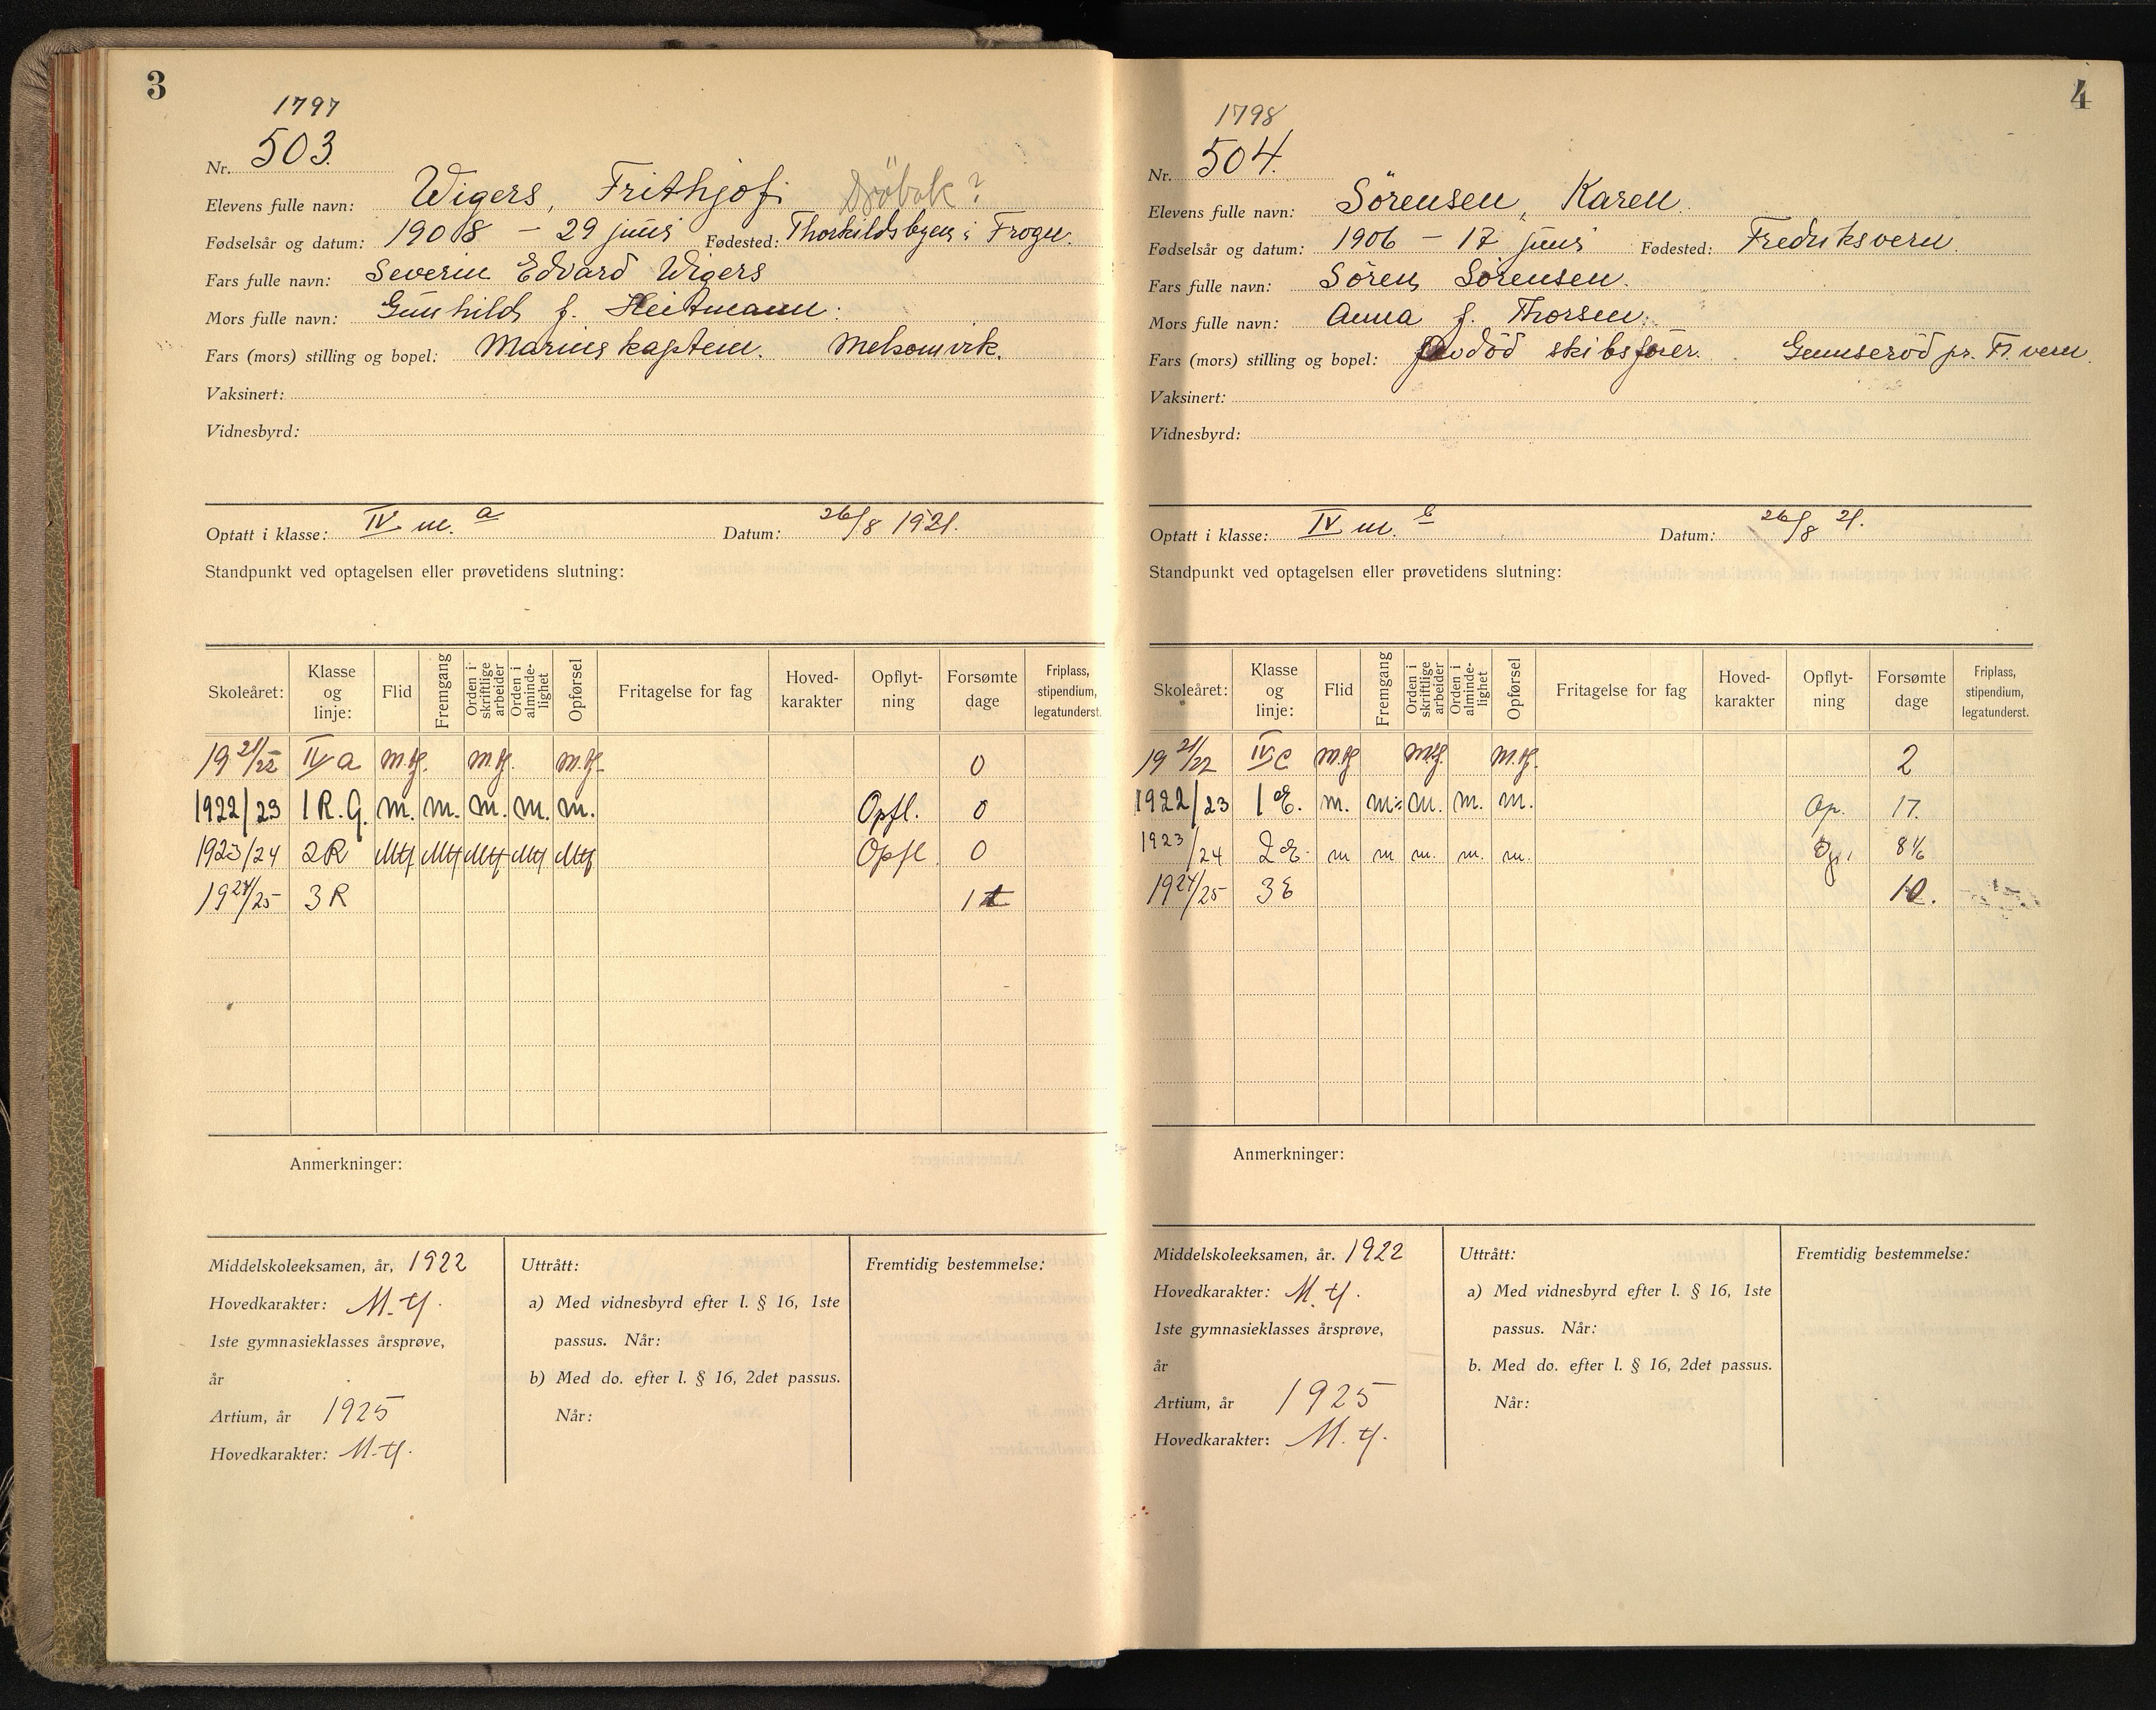 3
1797
Nr. 503.
Elevens fulle navn: Wigers, Frithjof. Dröbak?
Fødselsår og datum: 1908 - 29 juni Fødested: Thorkildsbyen i Frogn.
Fars fulle navn: Severin Edvard Wigers
Mors fulle navn: Gunhild f. Heitmann.
Fars (mors) stilling og bopel: Marinekaptein. Melsomvik.
Vaksinert:
Vidnesbyrd:
Optatt i klasse: IV m. a Datum: 26/8 1921.
Standpunkt ved optagelsen eller prøvetidens slutning:
Skoleåret: Klasse og linje: Flid Fremgang Orden i skriftlige arbeider Orden i alminde-lighet Opførsel Fritagelse for fag Hoved-karakter Opflyt-ning Forsømte dage Friplass, stipendium, legatunderst.
19 21/22 IV a m.tf. m.tf. m.tf. 0
1922/23 1 R.G. m. m. m. m. m. Opfl. 0
1923/24 2R Mtf Mtf Mtf Mtf Mtf Opfl. 0
19 24/25 3 R 1 t
Anmerkninger:
Middelskoleeksamen, år, 1922
Hovedkarakter: M.tf.
1ste gymnasieklasses årsprøve,
år
Artium, år 1925
Hovedkarakter: M.tf.
Uttrått:
a) Med vidnesbyrd efter l. § 16, 1ste
passus. Når:
b) Med do. efter l. § 16, 2det passus.
Når:
Fremtidig bestemmelse:
4
1798
Nr. 504.
Elevens fulle navn: Sörensen, Karen.
Fødselsår og datum: 1906 - 17 juni Fødested: Fredriksvern.
Fars fulle navn: Sören Sörensen.
Mors fulle navn: Anna f. Thorsen.
Fars (mors) stilling og bopel: Avdöd skibsförer. Gunneröd pr. Fr.vern.
Vaksinert:
Vidnesbyrd:
Optatt i klasse: IV m. c Datum: 26/8 21.
Standpunkt ved optagelsen eller prøvetidens slutning:
Skoleåret: Klasse og linje: Flid Fremgang Orden i skriftlige arbeider Orden i alminde-lighet Opførsel Fritagelse for fag Hoved-karakter Opflyt-ning Forsømte dage Friplass, stipendium, legatunderst.
19 21/22 IV c m.tf m.tf. m.tf. 2
1922/23 1 E. m. m: m. m. m. Op. 17.
1923/24 2 E. m m m. m. m. Op. 8 1/6
19 24/25 3 E 10.
Anmerkninger:
Middelskoleeksamen, år. 1922
Hovedkarakter: M.tf.
1ste gymnasieklasses årsprøve,
år
Artium, år 1925
Hovedkarakter: M.tf.
Uttrått:
a) Med vidnesbyrd efter l. § 16, 1ste
passus. Når:
b. Med do. efter l. § 16, 2det passus.
Når:
Fremtidig bestemmelse: